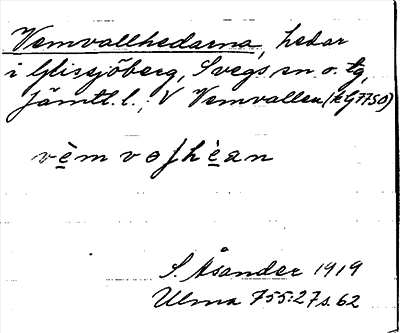 Vemvallhedarna, hedar
i Glissjöberg, Svegs sn o. tg,
Jämtl. l.; V Vemvallen (kG7750)
vèm voſhèan
S. Åsander 1919
Ulma 755:27 s. 62